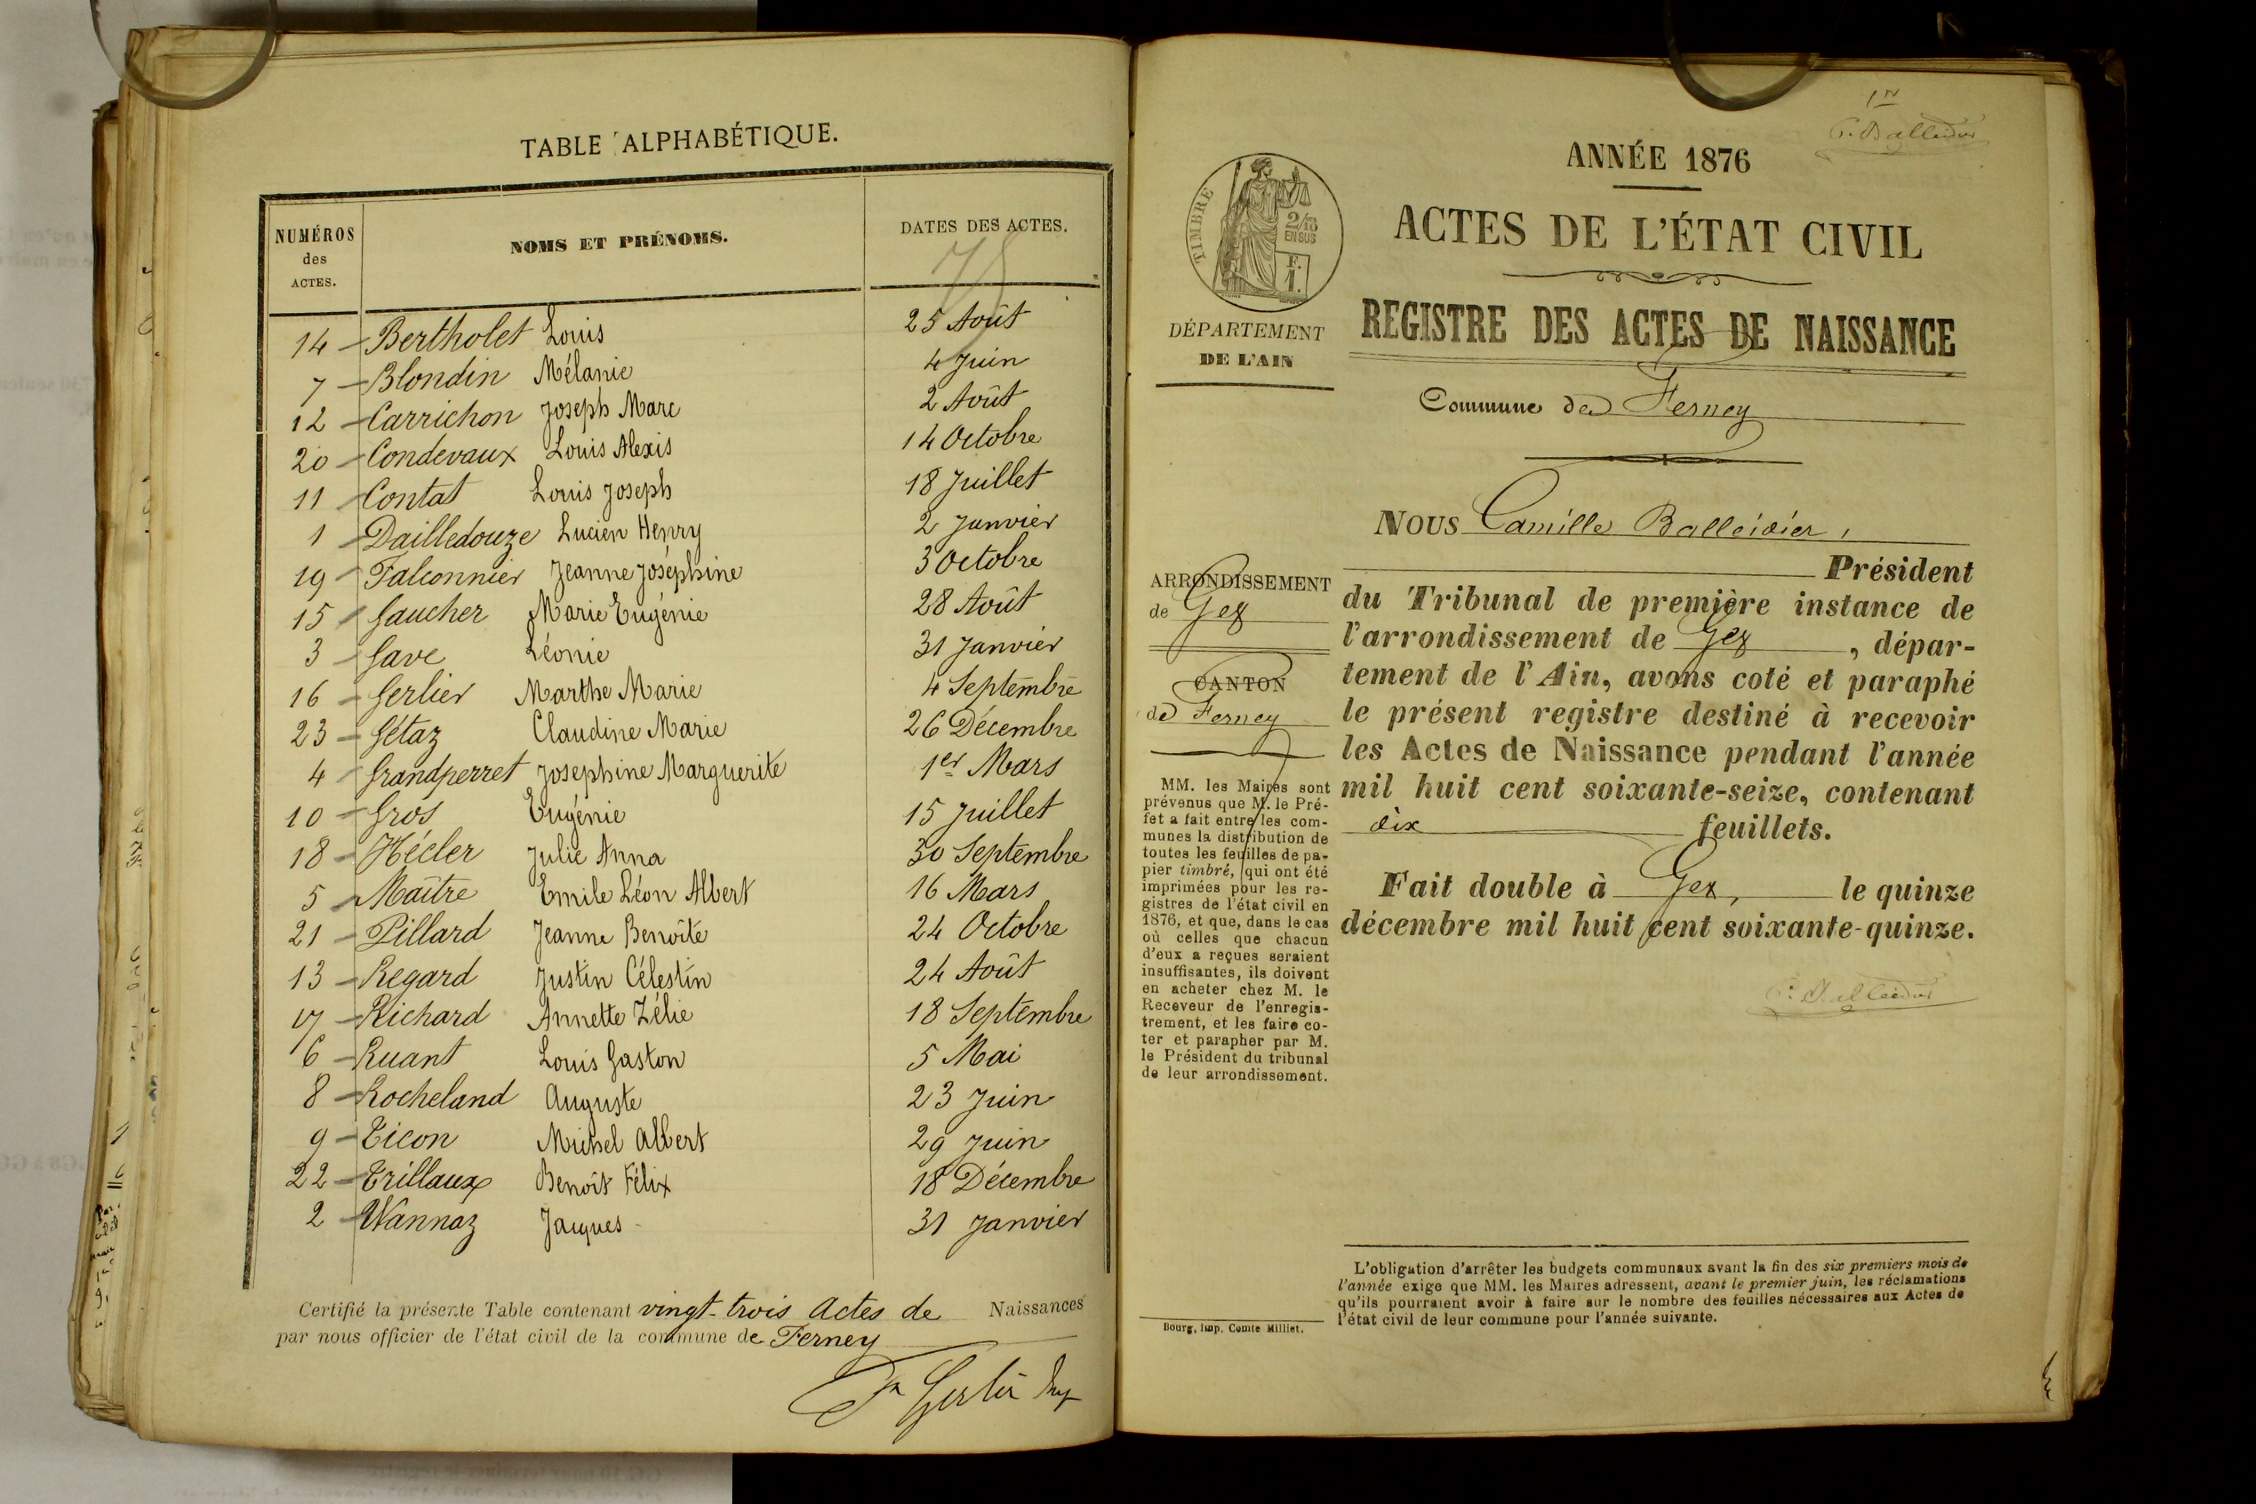 TABLE ALPHABÉTIQUE.
NUMÉROS des ACTES. NOMS ET PRÉNOMS. DATES DES ACTES.
75
14 Bertholet Louis 25 Août
7 Blondin Mélanie 4 Juin
12 Carrichon Joseph Marc 2 Août
20 Condevaux Louis Alexis 14 Octobre
11 Contat Louis Joseph 18 Juillet
1 Dailledouze Lucien Henry 2 Janvier
19 Falconnier Jeanne Joséphine 3 Octobre
15 Gaucher Marie Eugénie 28 Août
3 Gave Léonie 31 Janvier
16 Gerlier Marthe Marie 4 Septembre
23 Gétaz Claudine Marie 26 Décembre
4 Grandperret Josephine Marguerite 1er Mars
10 Gros Eugénie 15 Juillet
18 Hécler Julie Anna 30 Septembre
5 Maître Emile Léon Albert 16 Mars
21 Pillard Jeanne Benoîte 24 Octobre
13 Regard Justin Célestin 24 Août
17 Richard Annette Zélie 18 Septembre
6 Ruant Louis Gaston 5 Mai
8 Rocheland Auguste 23 Juin
9 Ticon Michel Albert 29 Juin
22 Trillaux Benoît Félix 18 Décembre
2 Wannaz Jacques 31 Janvier
Certifié la présente Table contenant vingt-trois Actes de Naissances
par nous officier de l'état civil de la commune de Ferney
ANNÉE 1876
ACTES DE L'ÉTAT CIVIL
REGISTRE DES ACTES DE NAISSANCE
TIMBRE
2/10
EN SUS
F.
1.
DÉPARTEMENT
DE L'AIN
Commune de Ferney
NOUS Camille Balleidier,
Président
du Tribunal de première instance de
l'arrondissement de Gex, dépar-
tement de l'Ain, avons coté et paraphé
le présent registre destiné à recevoir
les Actes de Naissance pendant l'année
mil huit cent soixante-seize, contenant
dix feuillets.
Fait double à Gex, le quinze
décembre mil huit cent soixante-quinze.
ARRONDISSEMENT
de Gex
CANTON
de Ferney
MM. les Maires sont
prévenus que M. le Pré-
fet a fait entre les com-
munes la distribution de
toutes les feuilles de pa-
pier timbré, qui ont été
imprimées pour les re-
gistres de l'état civil en
1876, et que, dans le cas
où celles que chacun
d'eux a reçues seraient
insuffisantes, ils doivent
en acheter chez M. le
Receveur de l'enregis-
trement, et les faire co-
ter et parapher par M.
le Président du tribunal
de leur arrondissement.
Bourg, Imp. Comte Milliet.
L'obligation d'arrêter les budgets communaux avant la fin des six premiers mois de
l'année exige que MM. les Maires adressent, avant le premier juin, les réclamations
qu'ils pourraient avoir à faire sur le nombre des feuilles nécessaires aux Actes de
l'état civil de leur commune pour l'année suivante.